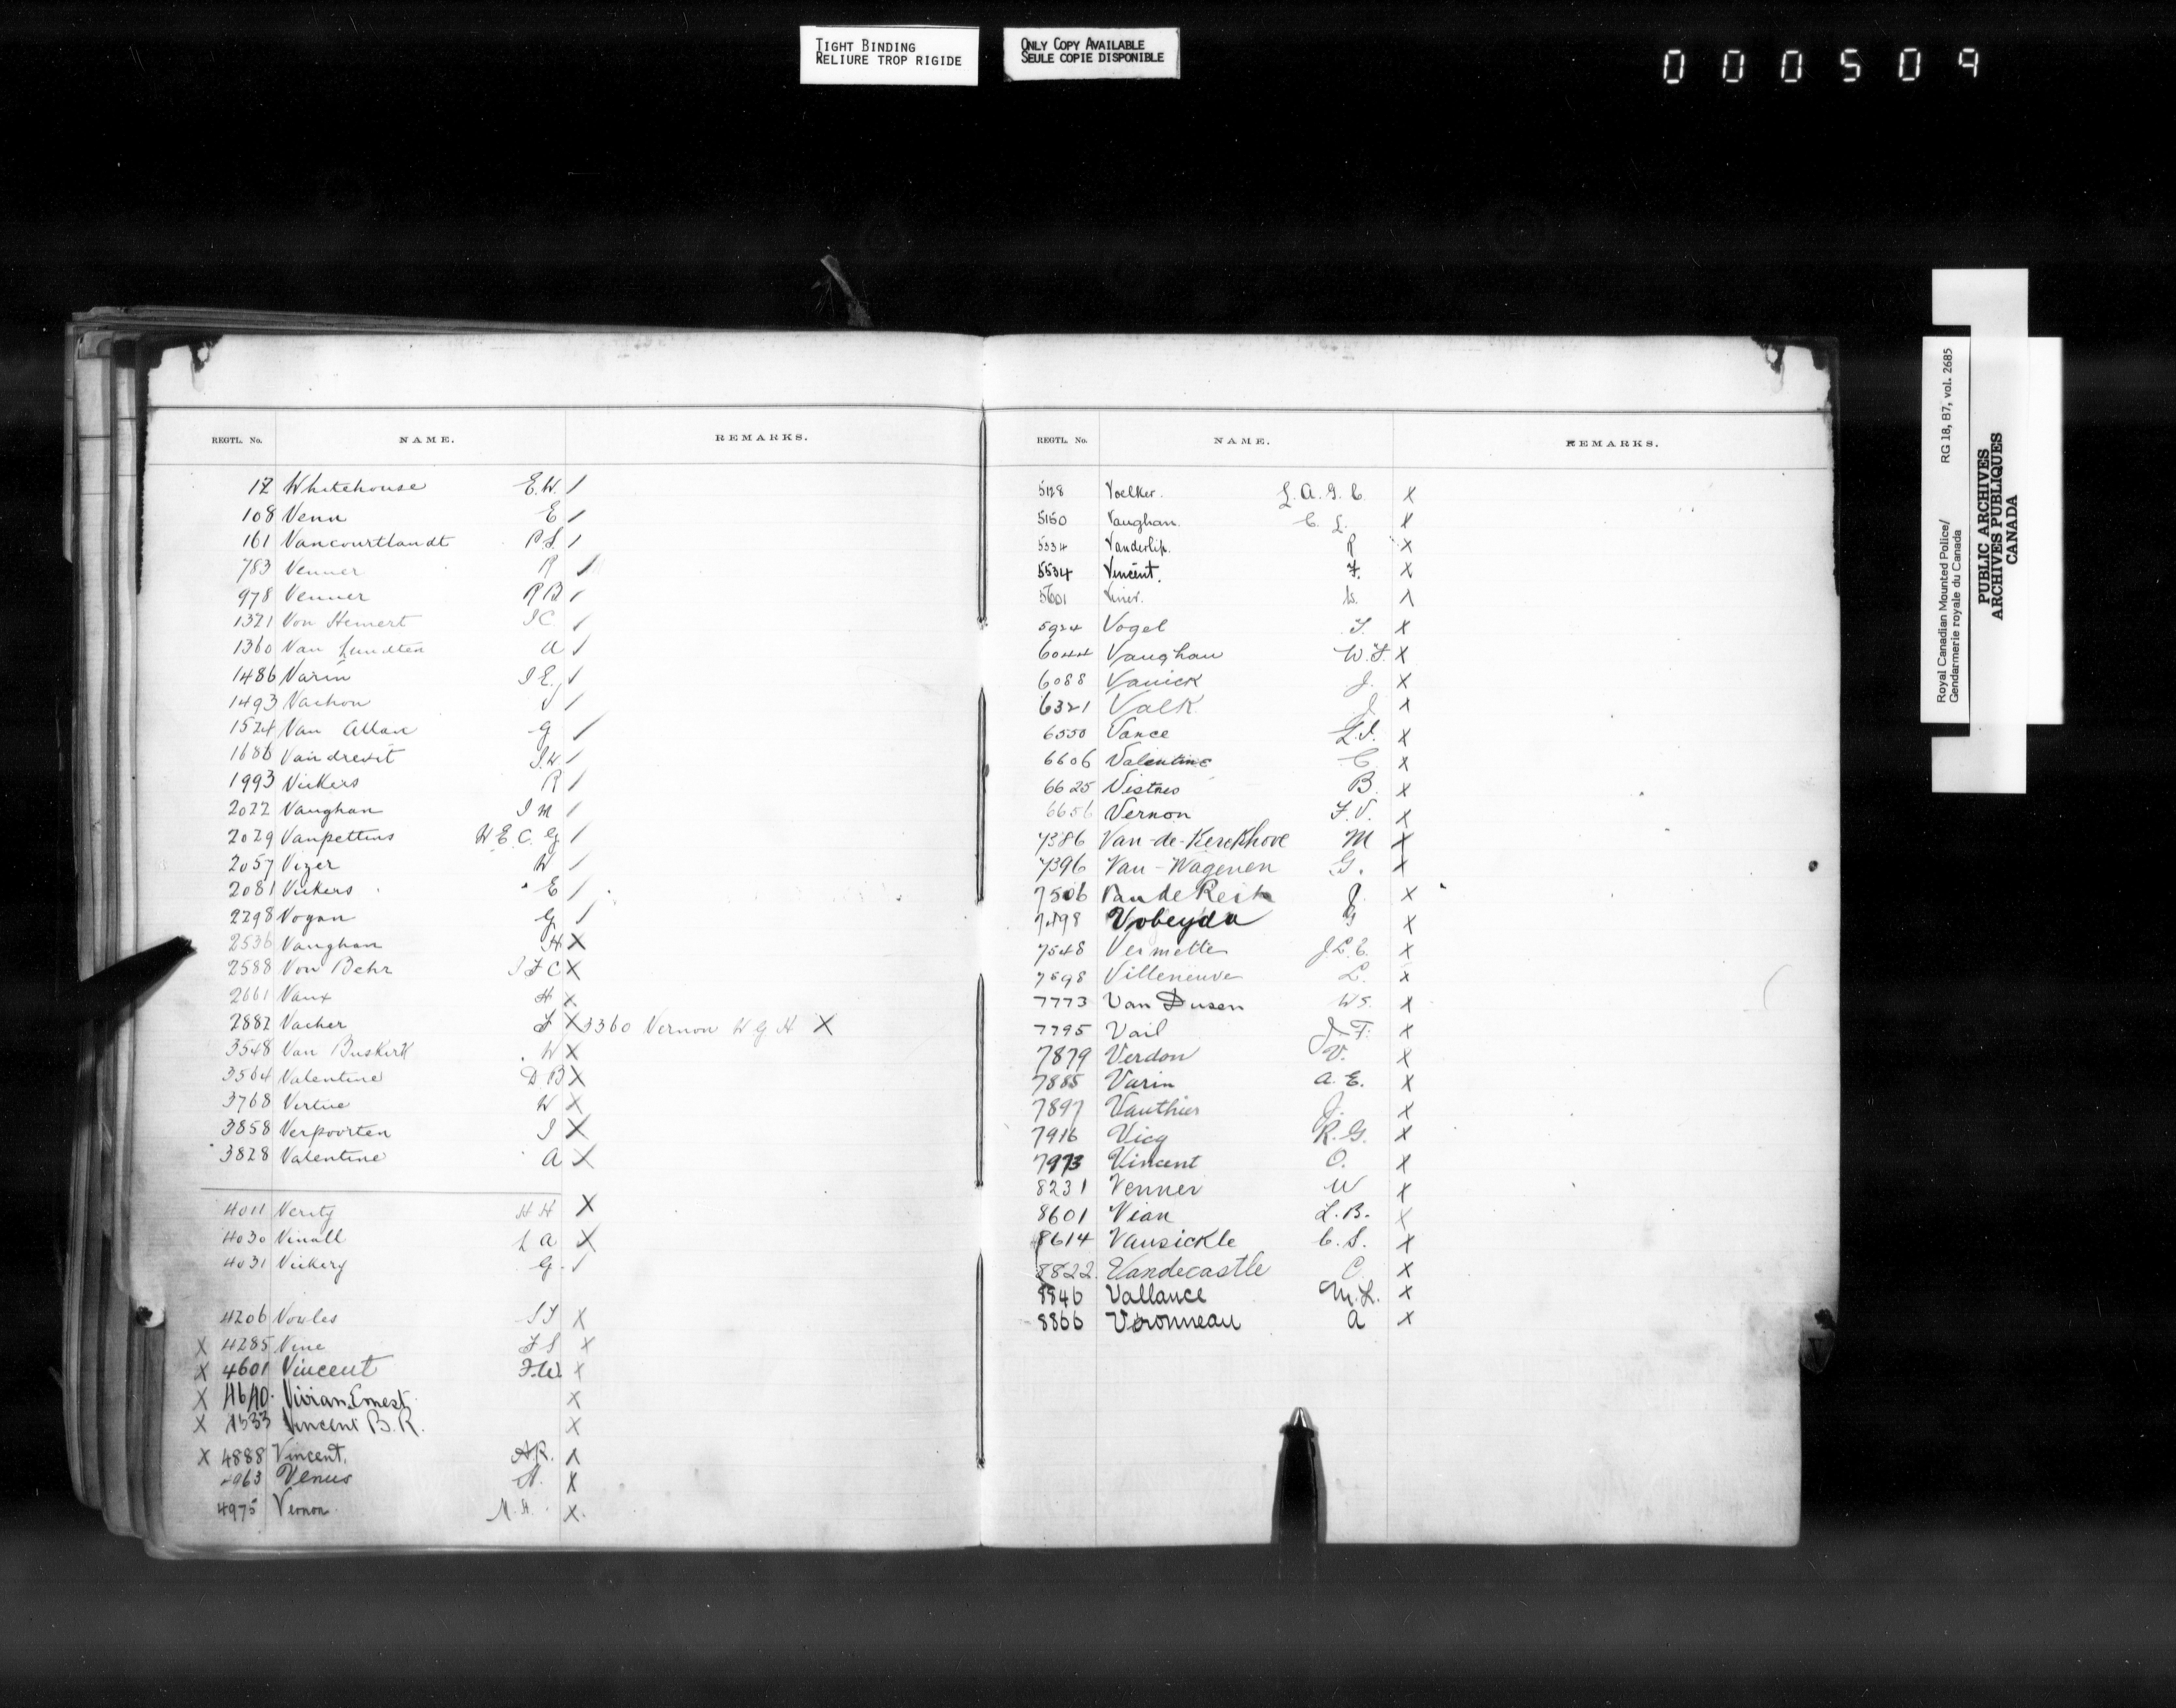 TIGHT BINDING
RELIURE TROP RIGIDE
ONLY COPY AVAILABLE
SEULE COPIE DISPONIBLE
000509
REGTL. No. NAME. REMARKS.
17 Whitehouse E.W. /
108 Venn E /
161 Vancourtlandt P.S. /
783 Venner R /
978 Venner R B /
1321 Von Hemert J C /
1360 Van Lundten A /
1486 Varin J E. /
1493 Vachon J /
1524 Van Allan G /
1686 J.W. /
1993 Vickers R /
2022 Vaughan J M /
2029 Vanpettens W E. C. G /
2057 Vizer W /
2081 Vickers E /
2298 Vogan G /
2536 Vaughan H. X
2588 Von Behr J F C X
2661 Vaux H X
2882 Vacher F X 3360 Vernon W G H X
3548 Van Buskirk W X
3564 Valentine D. B X
3768 Virtue W X
3858 Verpoorten J X
3828 Valentine A X
4011 Verity H H X
4030 Vinall L A X
4031 Vickery G. /
4206 Vowles X
X 4285 Vine F S X
X 4601 Vincent F.W. X
X 4640. Vivian Ernest. X
X Vincent B.R. X
X 4888 Vincent. A.R. X
4963 Venus A. X
4975 Vernon. M. H. X.
REGTL. No. NAME. REMARKS.
5128 Voelker. L. A. G. C. X
5150 Vaughan. C. L. X
5334 Vanderlip. R X
5534 Vincent. F. X
5601 Viner. X
5924 Vogel F. X
6044 Vaughan W.F. X
6088 Vanick J. X
6321 Valk J X
6550 Vance L.J. X
6606 Valentine C X
6625 Vistnes B. X
6656 Vernon F.V. X
7386 Van-de-Kerckhove M X
7396 Van-Wagenen G. X
7506 J. X
7498 Vobeyda X
7548 Vermette J.L.E. X
7598 Villeneuve L. X
7773 Van Dusen W S. X
7795 Vail J. F. X
7879 Verdon V. X
7885 Varin A. E. X
7897 Vauthier J. X
7916 Vicq R. G. X
7973 Vincent O. X
8231 Venner W X
8601 Vian L. B. X
8614 Vansickle C. S. X
8822. Vandecastle C. X
8846 Vallance M. L. X
8866 Veronneau A X
V
Royal Canadian Mounted Police/ RG 18, B7, vol. 2685
Gendarmerie royale du Canada
PUBLIC ARCHIVES
ARCHIVES PUBLIQUES
CANADA